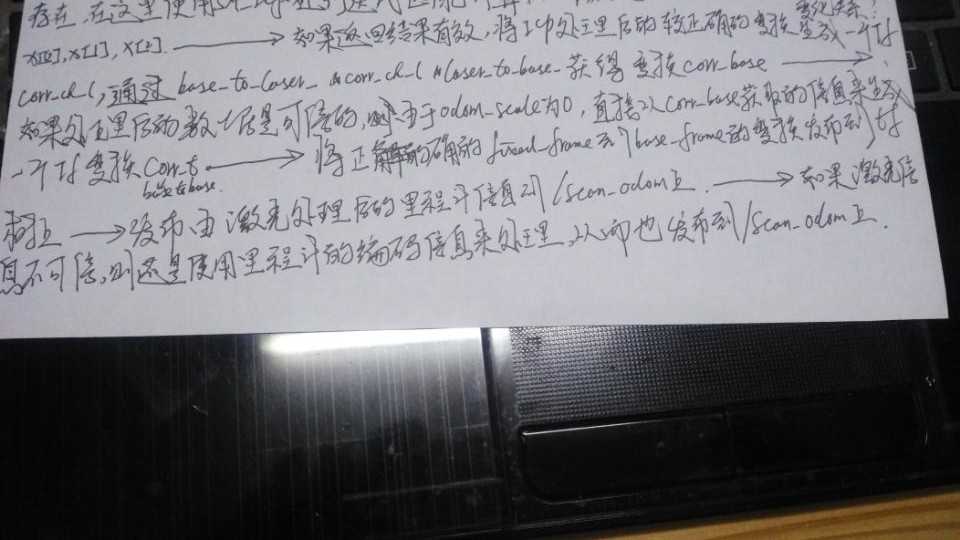 存在,在这里使用
变化关系?
x[0],x[1],x[2] ——→ 如果返回结果有效,将ICP处理后的较正确的变换生成一个tf
corr_ch_l,通过 base_to_laser_ * corr_ch_l * laser_to_base_ 获得变换corr_base ——→
如果处理后的数据是可信的,由于odom_scale为0,直接以corr_base获取的信息来生成
一个tf变换 corr_to ——→ 将正确的fixed_frame到base_frame的变换发布到tf
base_to_base.
树上 → 发布由激光处理后的里程计信息到/scan_odom上. ——→ 如果激光信
息不可信,则还是使用里程计的编码信息来处理,从而也发布到/scan_odom上.